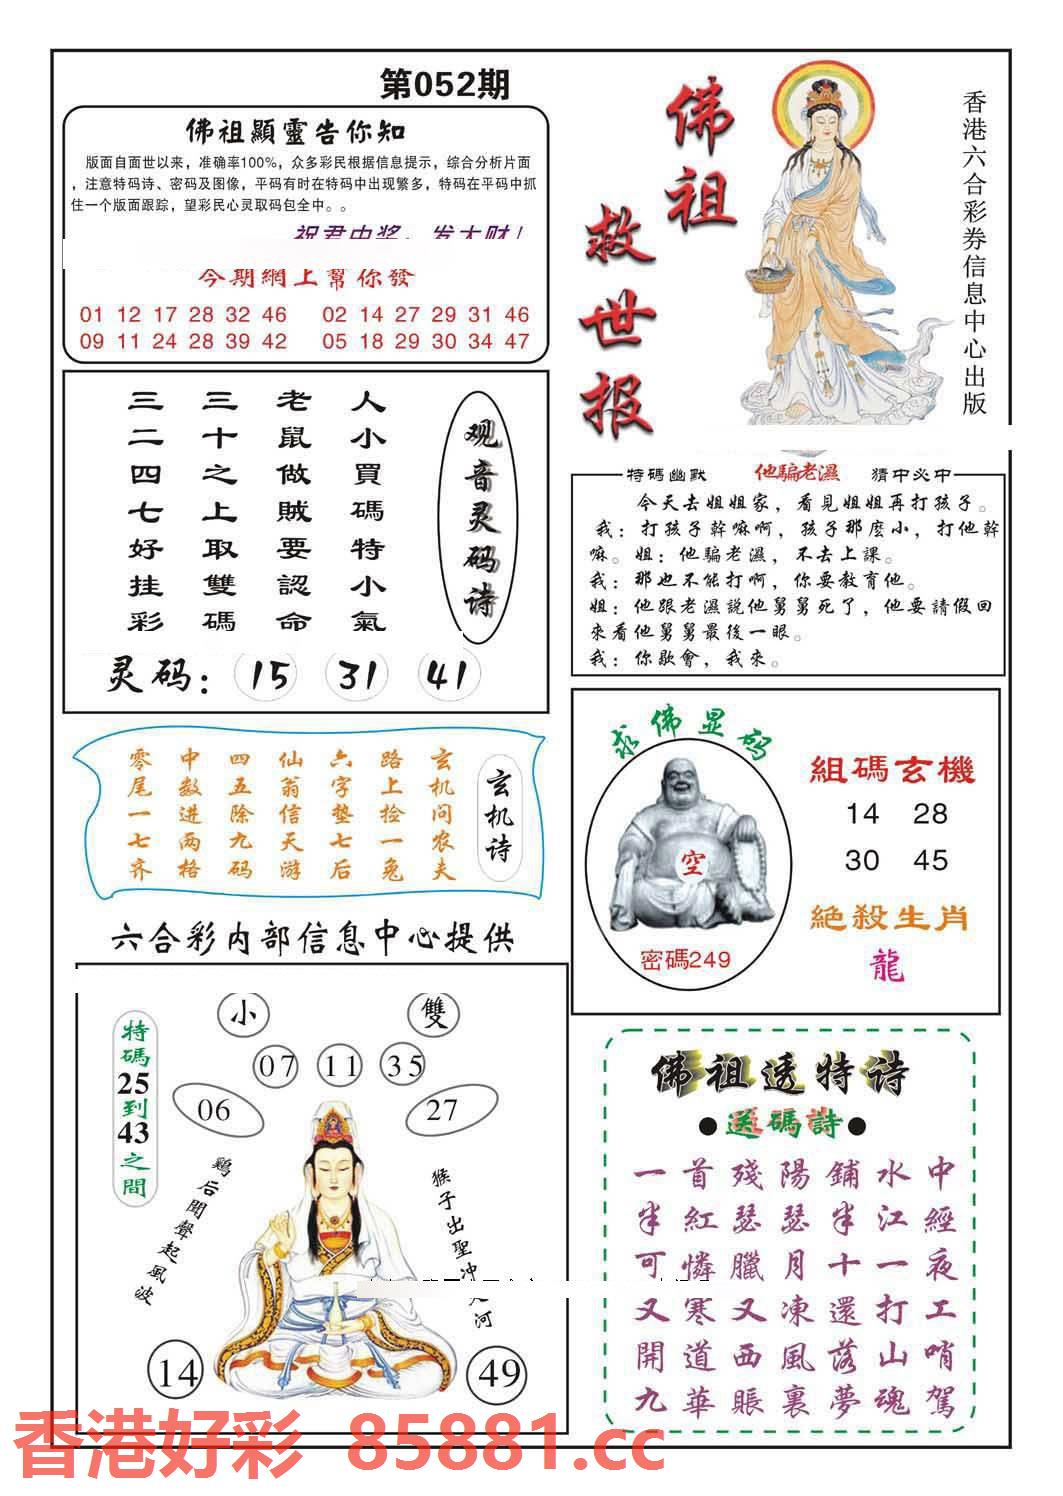 第052期
佛祖顯靈告你知
版面自面世以来，准确率100%，众多彩民根据信息提示，综合分析片面
，注意特码诗、密码及图像，平码有时在特码中出现繁多，特码在平码中抓
住一个版面跟踪，望彩民心灵取码包全中。。
祝君中奖，发大财！
今期網上幫你發
01 12 17 28 32 46 02 14 27 29 31 46
09 11 24 28 39 42 05 18 29 30 34 47
佛祖
救世报
香港六合彩券信息中心出版
观音灵码诗
人小買碼特小氣
老鼠做賊要認命
三十之上取雙碼
三二四七好挂彩
灵码： 15 31 41
特碼幽默 他騙老濕 猜中必中
今天去姐姐家，看見姐姐再打孩子。
我：打孩子幹嘛啊，孩子那麽小，打他幹
嘛。姐：他騙老濕，不去上課。
我：那也不能打啊，你要教育他。
姐：他跟老濕説他舅舅死了，他要請假回
來看他舅舅最後一眼。
我：你歇會，我來。
玄机诗
玄机问农夫
路上捡一兔
六字垫七后
仙翁信天游
四五除九码
中数进两格
零尾一七齐
求佛显码
空
密碼249
組碼玄機
14 28
30 45
絶殺生肖
龍
六合彩内部信息中心提供
小 雙
07 11 35
06 27
特碼25到43之間
鷄后聞聲起風波
猴子出聖冲
河
14 49
佛祖透特诗
●送碼詩●
中經夜工哨駕
水江一打山魂
鋪半十還落夢
陽瑟月凍風裏
殘瑟臘又西賬
首紅憐寒道華
一半可又開九
香港好彩 85881.cc